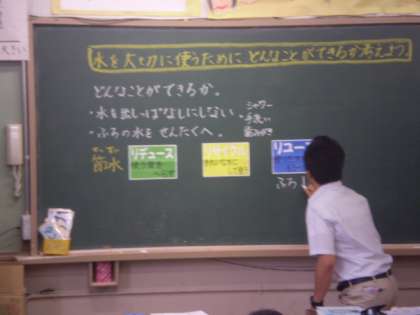 水を大切に使うために どんなことができるか考えよう
どんなことができるか。
・水を出しっぱなしにしない
・シャワー
・手洗い
歯みがき
・ふろの水を せんたくへ。
せっすい
節水
リデュース
へらす
リサイクル
して使う
リユー
ふろ